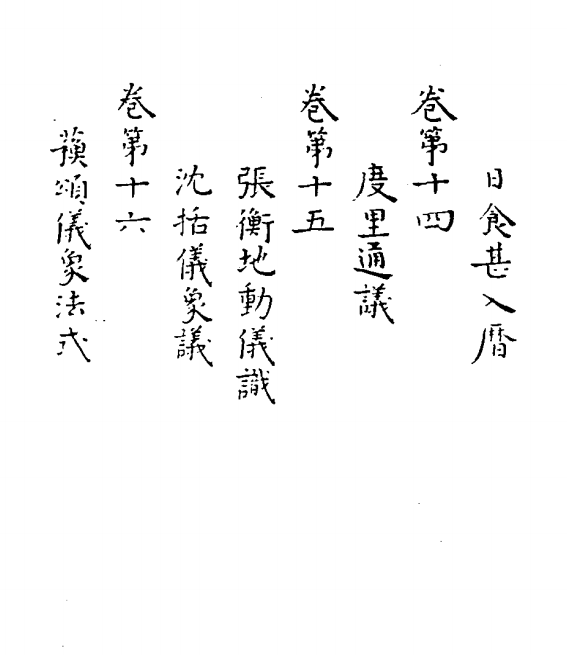 日食甚入暦
卷第十四
度里通議
卷第十五
張衡地動儀識
沈括儀象議
卷第十六
蘋頌儀象法式